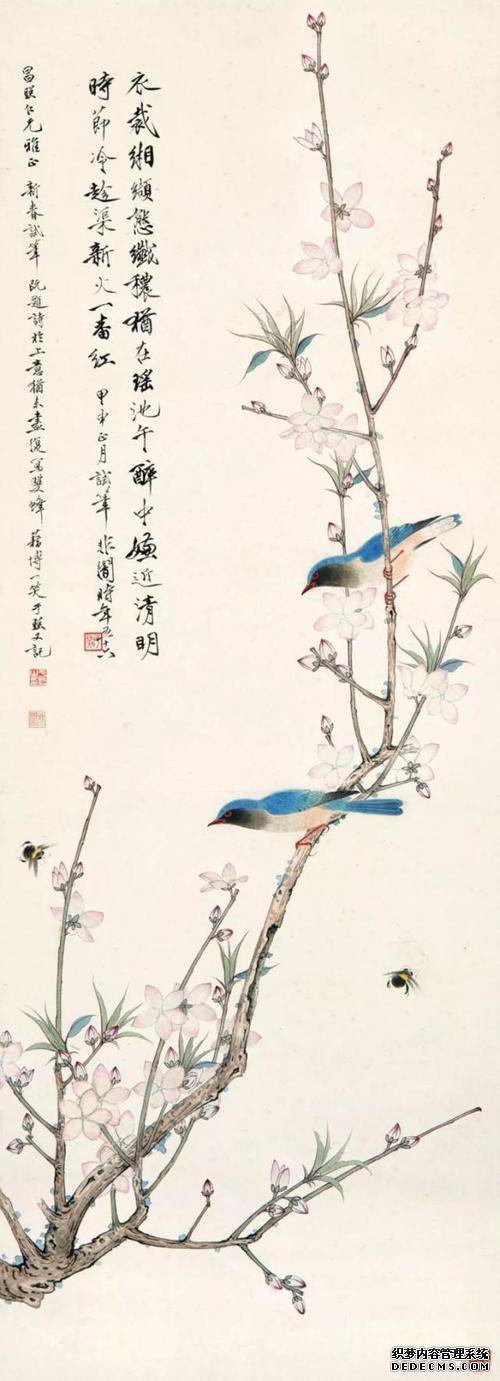 衣裁緗纈態纖穠猶在瑤池午醉中嫌近清明
時節冷趁渠新火一番紅
甲申正月試筆非闇時年五十六
昌朕仁兄雅正 新春試筆 既題詩於上意猶未盡復寫雙蜂藉博一笑 于照又記
织梦内容管理系统
DEDECMS.COM